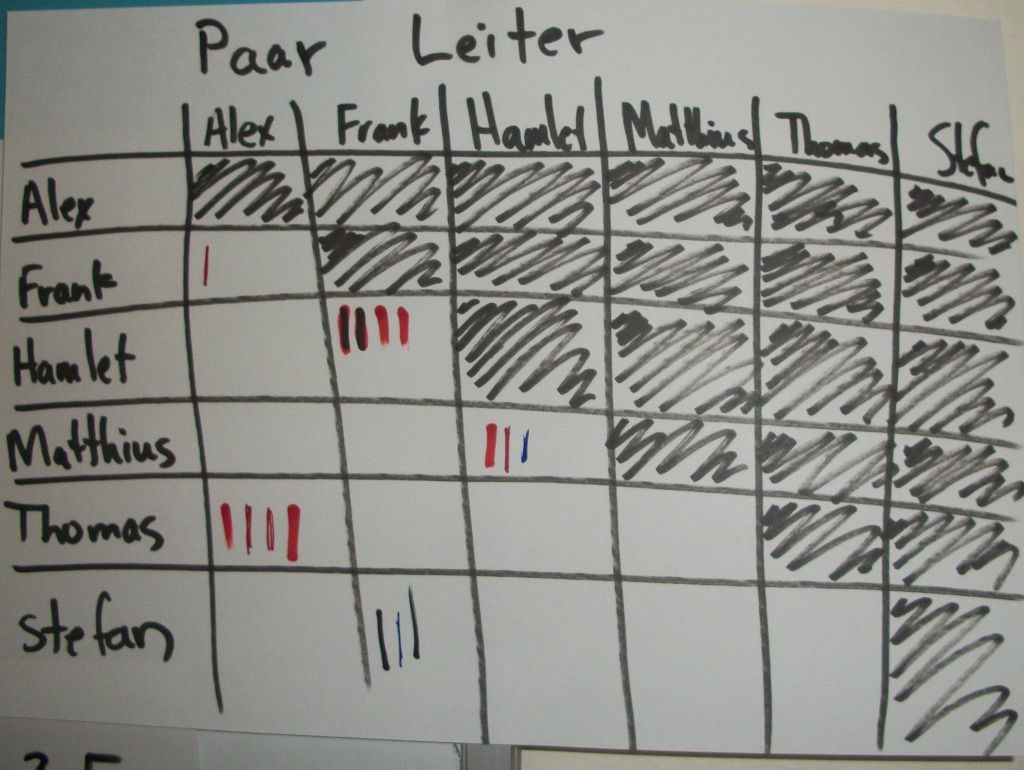 Paar Leiter
Alex Frank Hamlet Matthius Thomas Stefan
Alex
Frank
Hamlet
Matthius
Thomas
Stefan